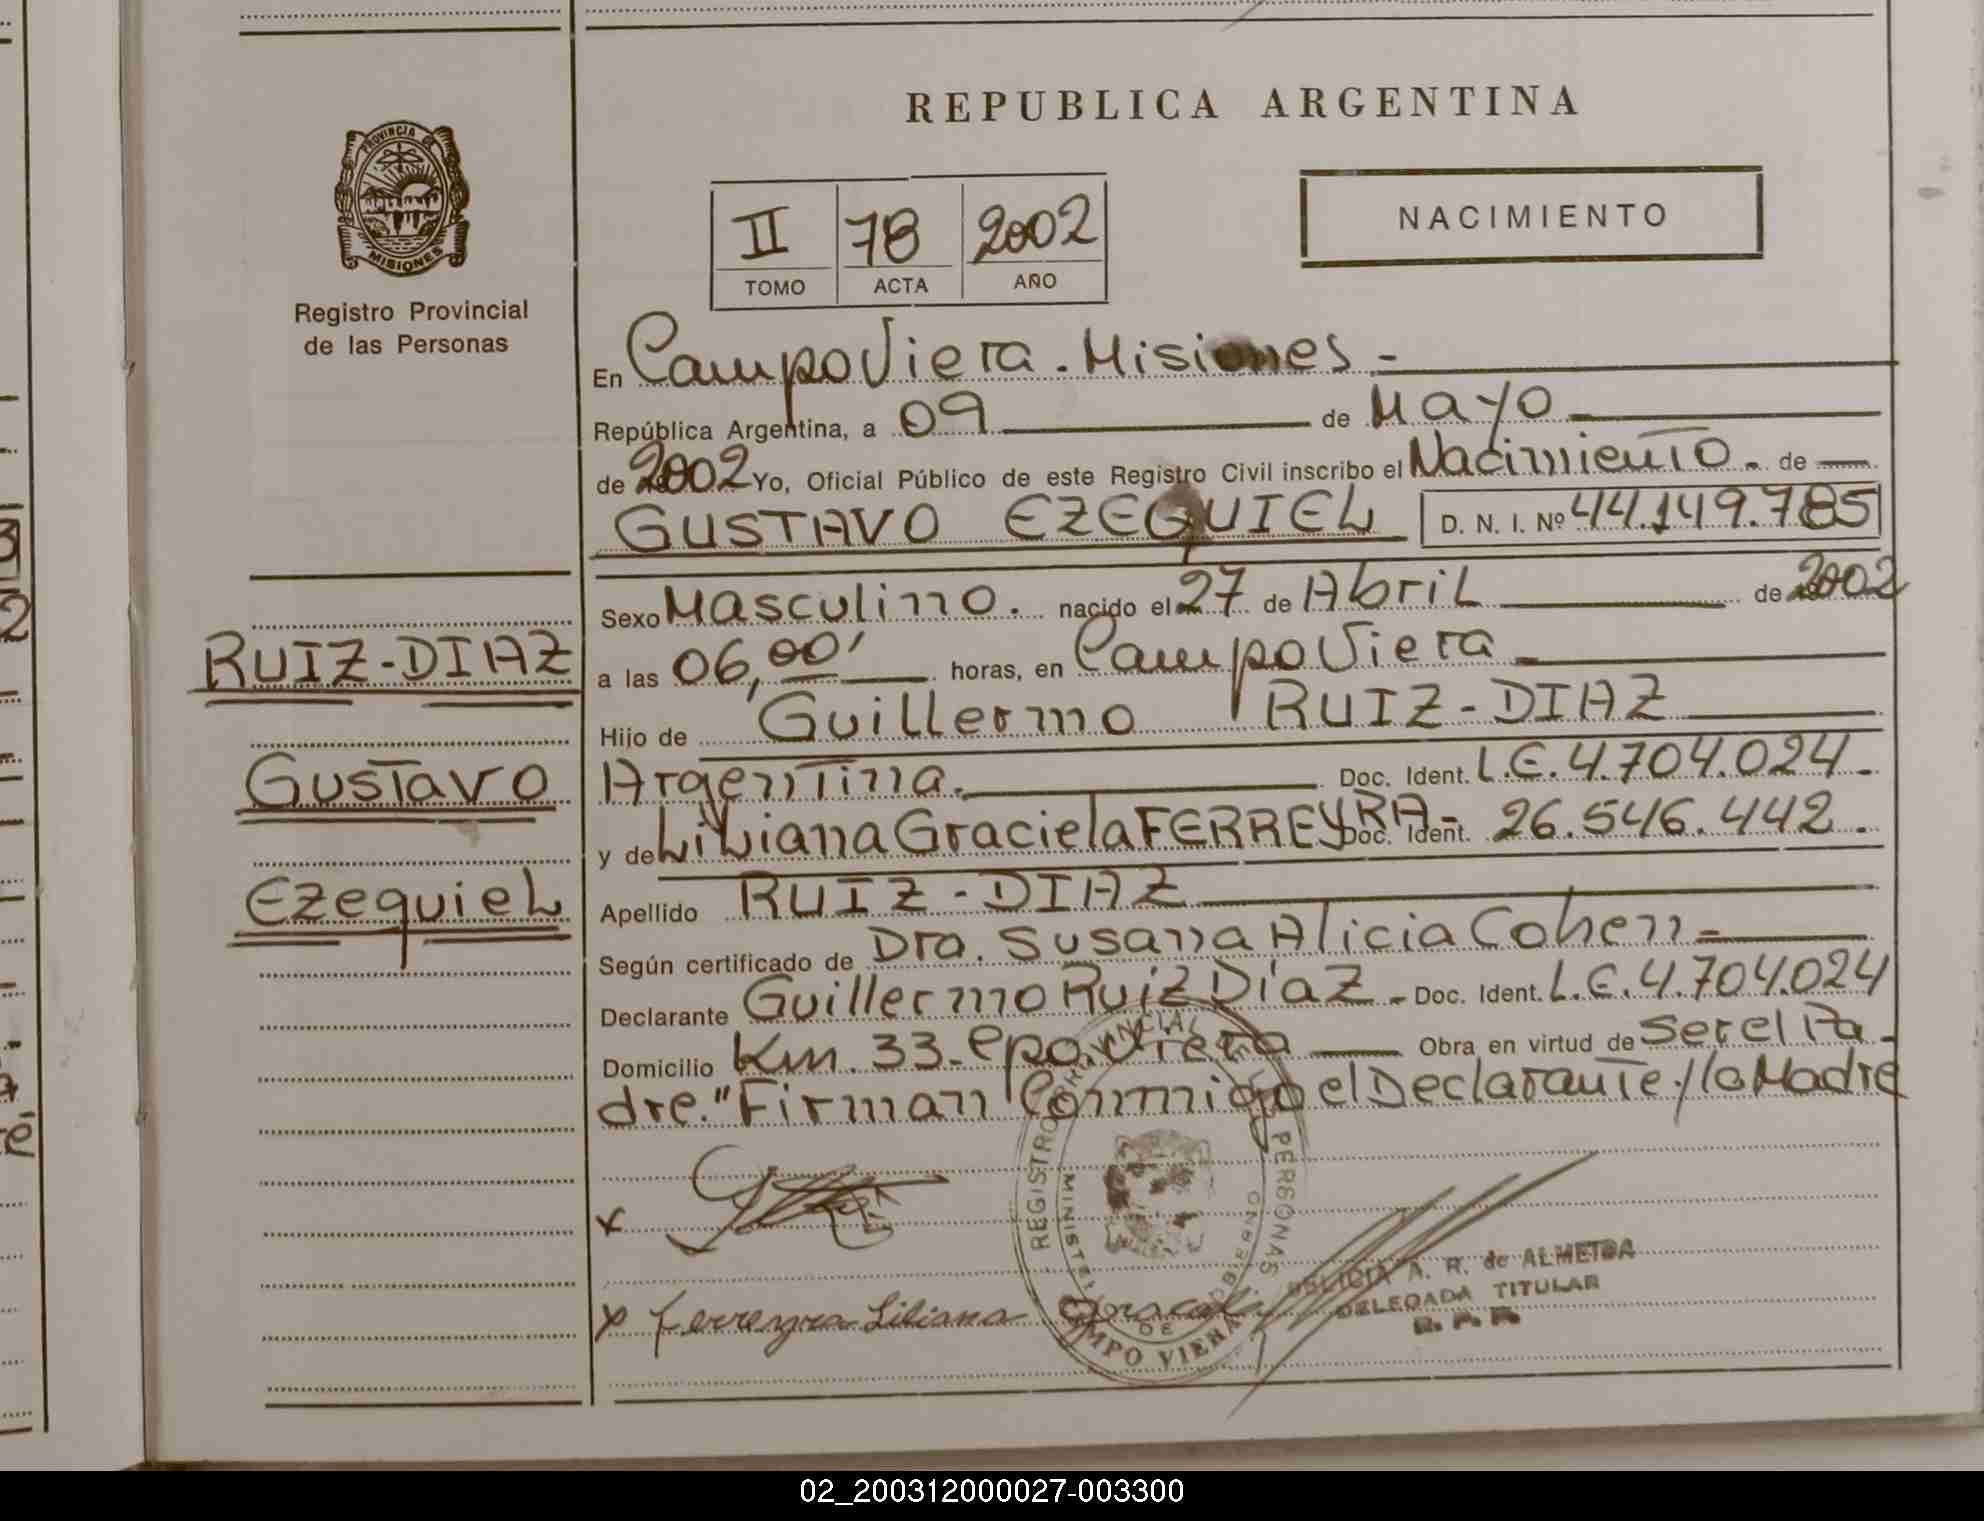 REPUBLICA ARGENTINA
PROVINCIA DE
MISIONES
Registro Provincial
de las Personas
II 78 2002
TOMO ACTA AÑO
NACIMIENTO
En Campo Viera. Misiones -
República Argentina, a 09 de Mayo
de 2002 Yo, Oficial Público de este Registro Civil inscribo el Nacimiento. de
GUSTAVO EZEQUIEL D. N. I. Nº 44.149.785
Sexo Masculino. nacido el 27 de Abril de 2002
a las 06,00' horas, en Campo Viera
Hijo de Guillermo RUIZ-DIAZ
Argentina. Doc. Ident. L.E. 4.704.024-
y de Liliana Graciela FERREYRA- Doc. Ident. 26.546.442.
Apellido RUIZ-DIAZ
Según certificado de Dra. Susana Alicia Cohen-
Declarante Guillermo Ruiz Díaz- Doc. Ident. L.E. 4.704.024
Domicilio Km. 33- Cpo. Viera Obra en virtud de Ser el Pa-
dre." Firman Conmigo el Declarante y la Madre
RUIZ-DIAZ
Gustavo
Ezequiel
x
x Ferreyra Liliana
REGISTRO PROVINCIAL PERSONAS
CAMPO VIERA
A. R. de ALMEIDA
DELEGADA TITULAR
02_200312000027-003300